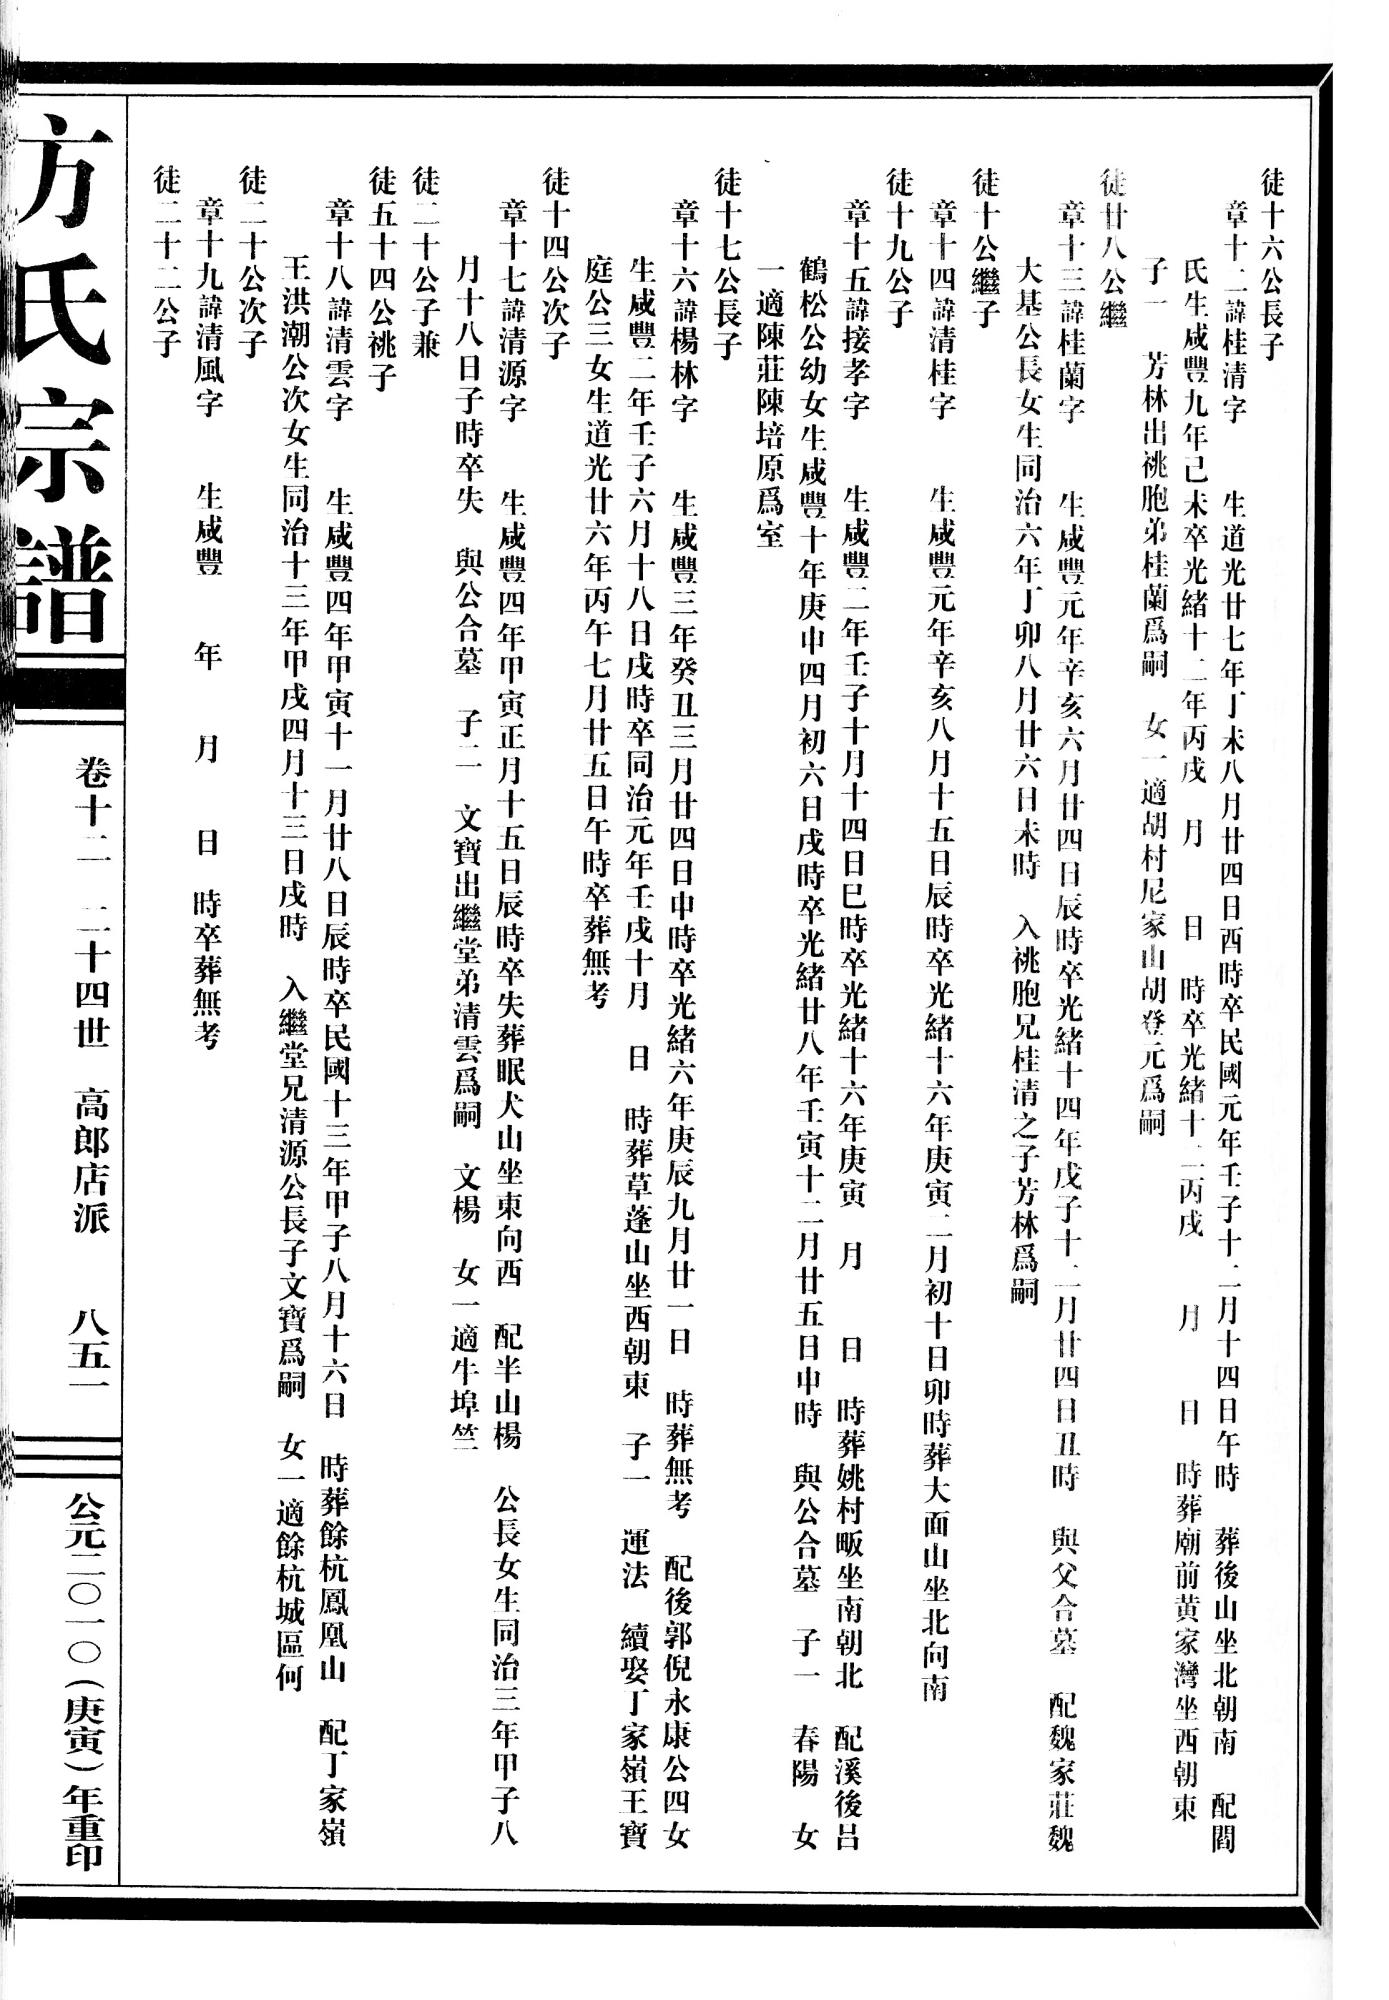 徒十六公長子
章十二諱桂清字　生道光廿七年丁未八月廿四日酉時卒民國元年壬子十二月十四日午時　葬後山坐北朝南　配閻
氏生咸豐九年己未卒光緒十二年丙戌　月　日　時卒光緒十二丙戌　月　日　時葬廟前黃家灣坐西朝東
子一　芳林出祧胞弟桂蘭爲嗣　女一適胡村尼家山胡登元爲嗣
徒廿八公繼
章十三諱桂蘭字　生咸豐元年辛亥六月廿四日辰時卒光緒十四年戊子十二月廿四日丑時　與父合墓　配魏家莊魏
大基公長女生同治六年丁卯八月廿六日未時　入祧胞兄桂清之子芳林爲嗣
徒十公繼子
章十四諱清桂字　生咸豐元年辛亥八月十五日辰時卒光緒十六年庚寅二月初十日卯時葬大面山坐北向南
徒十九公子
章十五諱接孝字　生咸豐二年壬子十月十四日巳時卒光緒十六年庚寅　月　日　時葬姚村畈坐南朝北　配溪後呂
鶴松公幼女生咸豐十年庚申四月初六日戌時卒光緒廿八年壬寅十二月廿五日申時　與公合墓　子一　春陽　女
一適陳莊陳培原爲室
徒十七公長子
章十六諱楊林字　生咸豐三年癸丑三月廿四日申時卒光緒六年庚辰九月廿一日　時葬無考　配後郭倪永康公四女
生咸豐二年壬子六月十八日戌時卒同治元年壬戌十月　日　時葬草蓬山坐西朝東　子一　運法　續娶丁家嶺王寶
庭公三女生道光廿六年丙午七月廿五日午時卒葬無考
徒十四公次子
章十七諱清源字　生咸豐四年甲寅正月十五日辰時卒失葬眠犬山坐東向西　配半山楊　公長女生同治三年甲子八
月十八日子時卒失　與公合墓　子二　文寶出繼堂弟清雲爲嗣　文楊　女一適牛埠竺
徒二十公子兼
徒五十四公祧子
章十八諱清雲字　生咸豐四年甲寅十一月廿八日辰時卒民國十三年甲子八月十六日　時葬餘杭鳳凰山　配丁家嶺
王洪潮公次女生同治十三年甲戌四月十三日戌時　入繼堂兄清源公長子文寶爲嗣　女一適餘杭城區何
徒二十公次子
章十九諱清風字　生咸豐　年　月　日　時卒葬無考
徒二十二公子
方氏宗譜
卷十二　二十四世　高郎店派　八五一
公元二〇一〇（庚寅）年重印